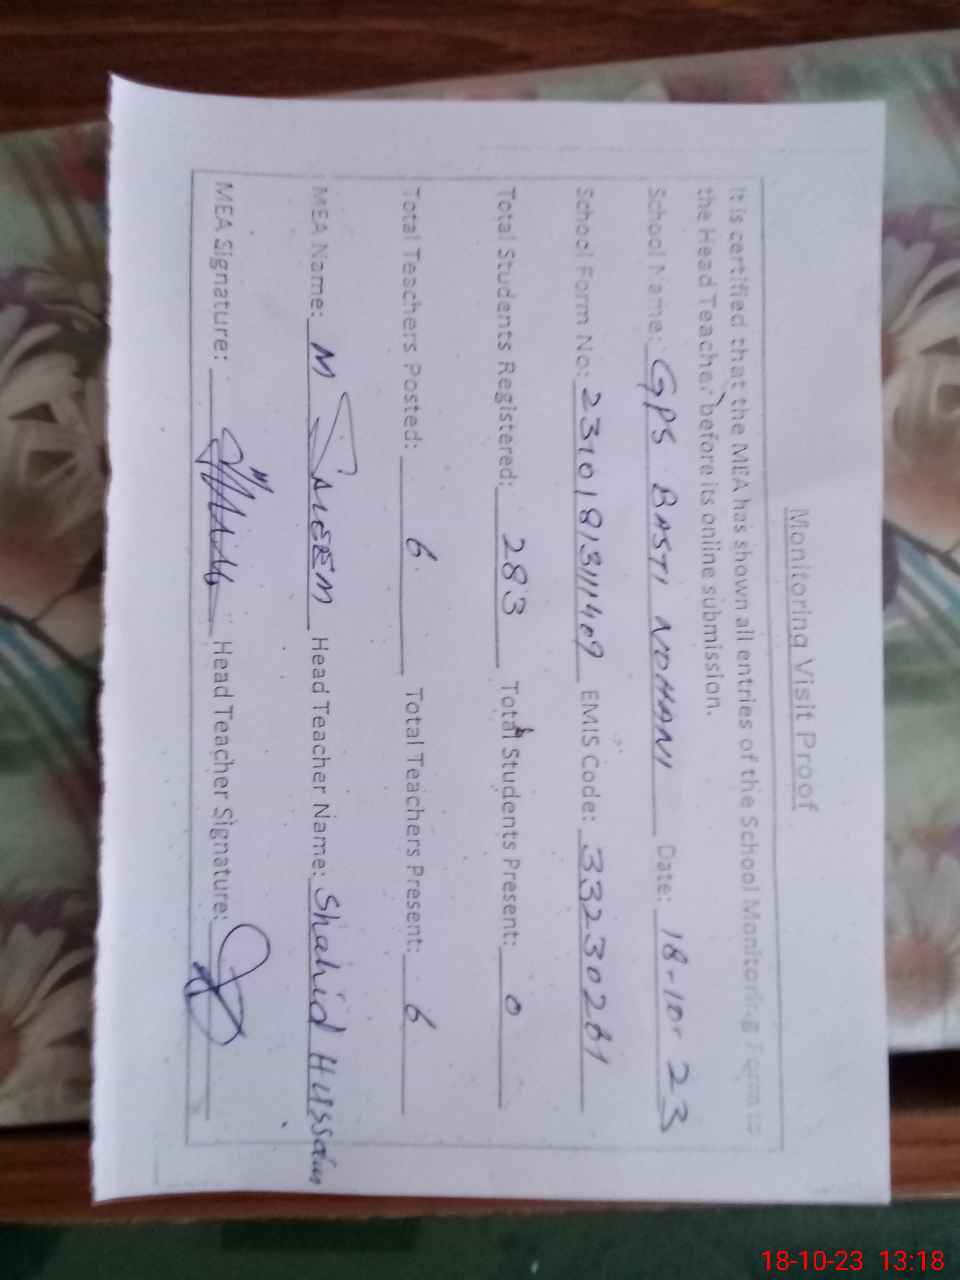 Monitoring Visit Proof
It is certified that the MEA has shown all entries of the School Monitoring Form to
the Head Teacher before its online submission.
School Name: GPS BASTI NOHANI Date: 18-10-23
School Form No: 2310181311409 EMIS Code: 33230261
Total Students Registered: 283 Total Students Present: 0
Total Teachers Posted: 6 Total Teachers Present: 6
MEA Name: M SALEEM Head Teacher Name: Shahid Hussain
MEA Signature: Head Teacher Signature:
18-10-23 13:18